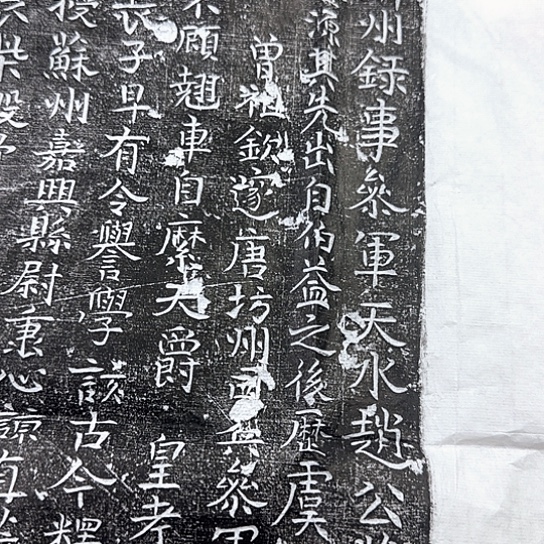 州錄事叅軍天水趙公
源其先出自伯益之後歷虞
曾祖欽遂唐坊州司兵叅軍
不願翹車自縻天爵 皇考
長子早有令譽學該古今釋
授蘇州嘉興縣尉秉心諒直